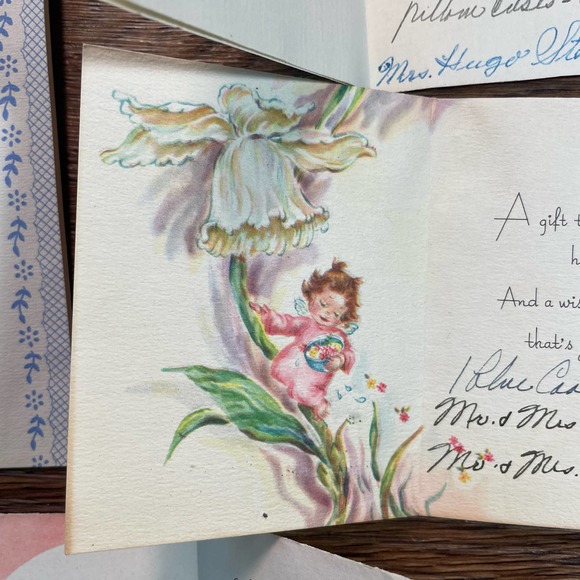 pillow cases -
Mrs. Hugo
A gift
And a
that's
1 Blue
Mr. & Mrs
Mr. & Mrs.